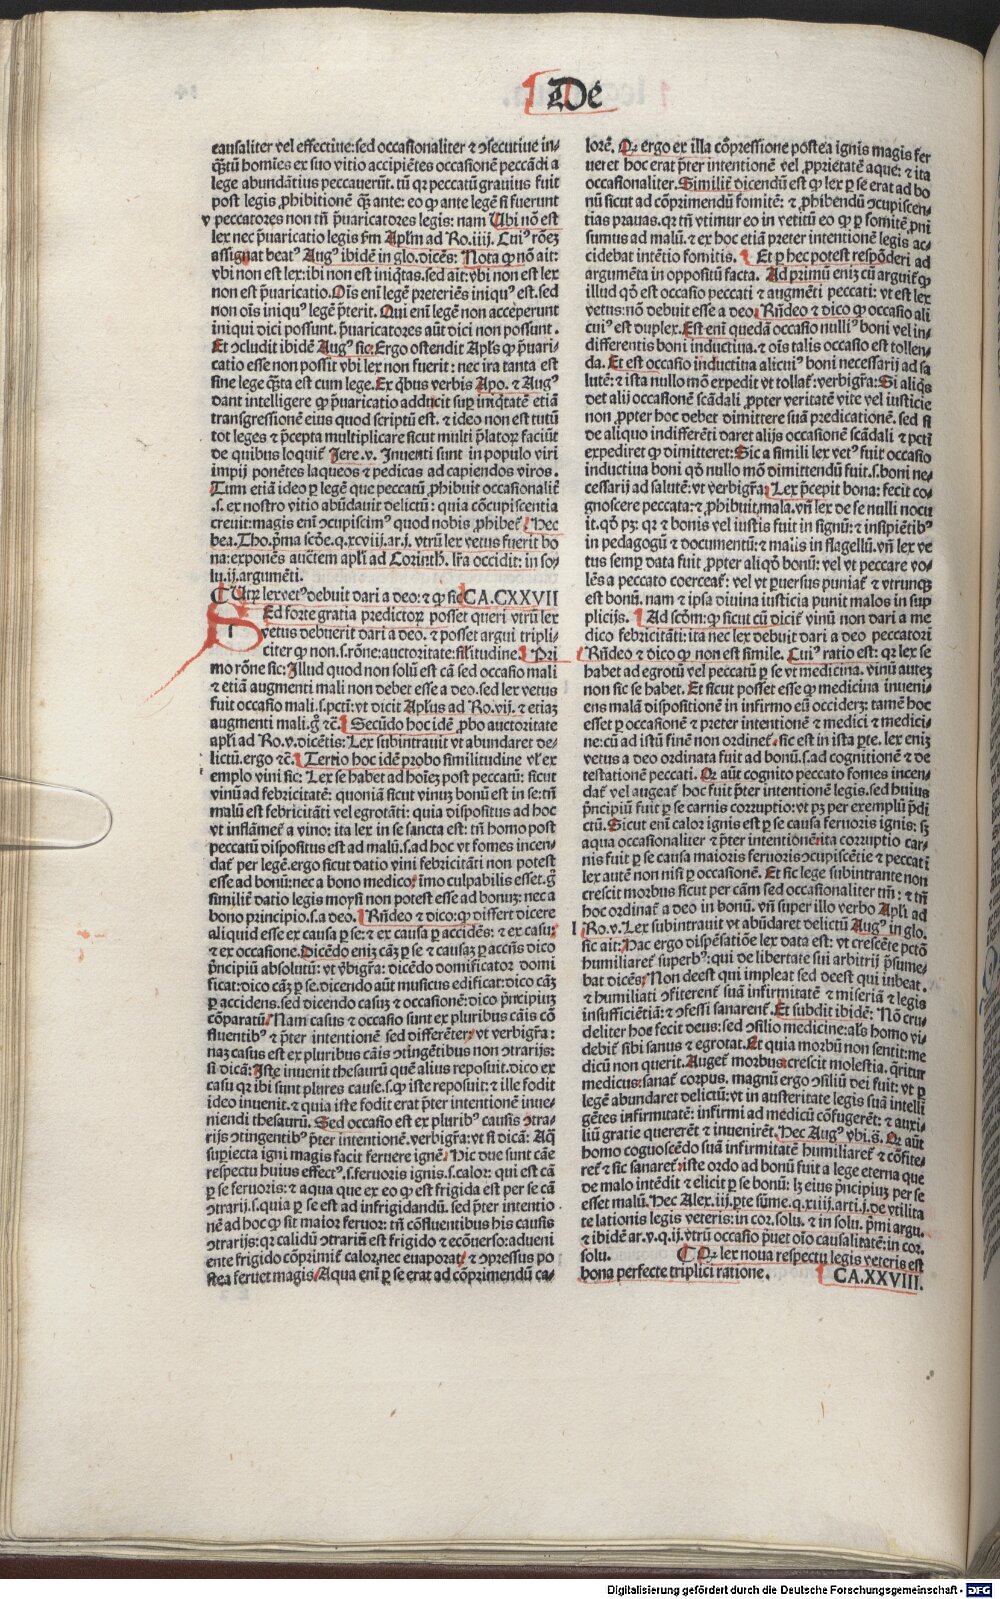 De
causaliter vel effectiue: sed occasionaliter ⁊ ↄsecutiue in-
q̄ꝫtū homīes ex suo vitio accipiētes occasionē peccādi a
lege abundātius peccauerūt. tn̄ qꝛ peccatū grauius fuit
post legis ꝓhibitionē q̄ꝫ ante: eo ꝙ ante legē si fuerunt
v peccatores non tn̄ p̄uaricatores legis: nam Ubi nō est
lex nec p̄uaricatio legis ẜm Apl̄m ad Ro.iiij. Cuiꝰ rōeꝫ
assignat beatꝰ Augꝰ ibidē in glo. dicēs: Nota ꝙ nō ait:
vbi non est lex: ibi non est iniq̇tas. sed ait: vbi non est lex
non est p̄uaricatio. Oīs enī legē preteriēs iniquꝰ est. sed
non oīs iniquꝰ legē p̄terit. Qui enī legē non acceperunt
iniqui dici possunt. p̄uaricatores aūt dici non possunt.
Et ↄcludit ibidē Augꝰ sic: Ergo ostendit Apl̄s ꝙ p̄uari-
catio esse non possit vbi lex non fuerit: nec ira tanta est
sine lege q̄ꝫta est cum lege. Ex q̇bus verbis Apo. ⁊ Augꝰ
dant intelligere ꝙ p̄uaricatio addicit suꝑ iniq̇tatē etiā
transgressionē eius quod scriptū est. ⁊ ideo non est tutū
tot leges ⁊ p̄cepta multiplicare sicut multi p̄latoꝝ faciūt
de quibus loquit̄ Jere.v. Inuenti sunt in populo viri
impij ponētes laqueos ⁊ pedicas ad capiendos viros.
Tum etiā ideo ꝑ legē que peccatū ꝓhibuit occasionalit̄
.s. ex nostro vitio abūdauit delictū: quia cōcupiscentia
creuit: magis enī ↄcupiscimꝰ quod nobis ꝓhibet̄ Hec
bea. Tho. p̄ma scd̄e. q. xcviij. ar. j. vtrū lex vetus fuerit bo
na: exponēs auctem apl̄i ad Corinth. lr̄a occidit: in so-
lu. ij. argumēti.
¶ Utꝝ lex vetꝰ debuit dari a deo: ⁊ ꝙ sic CA.CXXVII
SEd forte gratia predictoꝝ posset queri vtrū lex
vetus debuerit dari a deo. ⁊ posset argui tripli-
citer ꝙ non. s. rōne: auctoritate: sil̄itudine. Pri
mo rōne sic: Illud quod non solū est cā sed occasio mali
⁊ etiā augmenti mali non debet esse a deo. sed lex vetus
fuit occasio mali. s. pctī: vt dicit Apl̄us ad Ro. vij. ⁊ etiaꝫ
augmenti mali. g̊ ⁊c̄. Secūdo hoc idē ꝓbo auctoritate
apl̄i ad Ro. v. dicētis: Lex subintrauit vt abundaret de-
lictū. ergo ⁊c̄. Tertio hoc idē probo similitudine vl̓ ex
emplo vini sic: Lex se habet ad hoīeꝫ post peccatū: sicut
vinū ad febricitatē: quoniā sicut vinuꝫ bonū est in se: tn̄
malū est febricitāti vel egrotāti: quia dispositus ad hoc
vt inflāmet̄ a vino: ita lex in se sancta est: tn̄ homo post
peccatū dispositus est ad malū. s. ad hoc vt fomes incen-
dat̄ per legē. ergo sicut datio vini febricitāti non potest
esse ad bonū: nec a bono medico: īmo culpabilis esset. g̊
similit̄ datio legis moysi non potest esse ad bonuꝫ: nec a
bono principio. s. a deo. Rn̄deo ⁊ dico: ꝙ differt dicere
aliquid esse ex causa ꝑ se: ⁊ ex causa ꝑ accidēs: ⁊ ex casu:
⁊ ex occasione. Dicēdo eniꝫ cāꝫ ꝑ se ⁊ causaꝫ ꝑ accn̄s dico
p̄ncipiū absolutū: vt v̄bigr̄a: dicēdo domificator domi
ficat: dico cāꝫ ꝑ se. dicendo aūt musicus edificat: dico cāꝫ
ꝑ accidens. sed dicendo casuꝫ ⁊ occasionē: dico p̄ncipiuꝫ
cōparatū. Nam casus ⁊ occasio sunt ex pluribus cāis cō
fluentibꝰ ⁊ p̄ter intentionē sed differēter: vt verbigr̄a:
naꝫ casus est ex pluribus cāis ↄtingētibus non ↄtrarijs:
si dicā: Iste inuenit thesaurū quē alius reposuit. dico ex
casu qꝛ ibi sunt plures cause. s. ꝙ iste reposuit: ⁊ ille fodit
ideo inuenit. ⁊ quia iste fodit erat p̄ter intentionē inue-
niendi thesaurū. Sed occasio est ex pluribꝰ causis ↄtra-
rijs ↄtingentibꝰ p̄ter intentionē. verbigr̄a: vt si dicā: Aq̄
supiecta igni magis facit feruere ignē. Hic due sunt cāe
respectu huius effectꝰ. s. feruoris ignis. s. calor: qui est cā
ꝑ se feruoris: ⁊ aqua que ex eo ꝙ est frigida est per se cā
ↄtrarij. s. quia ꝑ se est ad infrigidandū. sed p̄ter intentio
nē ad hoc ꝙ sit maior feruor: tn̄ cōfluentibus his causis
ↄtrarijs: qꝛ calidū ↄtrariū est frigido ⁊ ecōuerso: adueni
ente frigido cōprimit̄ calor nec euaporat̄ ⁊ ↄpressus po
stea feruet magis. Aqua enī ꝑ se erat ad cōprimendū ca-
lorē. Qꝛ ergo ex illa cōpressione postea ignis magis fer
ueret hoc erat p̄ter intentionē vel ꝓprietatē aque: ⁊ ita
occasionaliter. Similit̄ dicendū est ꝙ lex ꝑ se erat ad bo
nū sicut ad cōprimendū fomitē: ⁊ ꝓhibendū ↄcupiscen-
tias prauas. qꝛ tn̄ vtimur eo in vetitū eo ꝙ ꝑ fomitē pni
sumus ad malū. ⁊ ex hoc etiā preter intentionē legis ac-
cidebat intētio fomitis. Et ꝑ hec potest respōderi ad
argumēta in oppositū facta. Ad primū eniꝫ cū arguit̄ ꝙ
illud qd̄ est occasio peccati ⁊ augmēti peccati: vt est lex
vetus: nō debuit esse a deo. Rn̄deo ⁊ dico ꝙ occasio ali
cuiꝰ est duplex. Est enī quedā occasio nulliꝰ boni vel in-
differentis boni inductiua. ⁊ oīs talis occasio est tollen-
da. Et est occasio inductiua alicuiꝰ boni necessarij ad sa
lutē: ⁊ ista nullo mō expedit vt tollat̄: verbigr̄a: Si aliq̇s
det alij occasionē scādali ꝓpter veritatē vite vel iusticie
non ꝓpter hoc debet dimittere suā predicationē. sed si
de aliquo indifferēti daret alijs occasionē scādali ⁊ pctī
expediret ꝙ dimitteret: Sic a simili lex vetꝰ fuit occasio
inductiua boni qd̄ nullo mō dimittendū fuit. s. boni ne-
cessarij ad salutē: vt verbigr̄a: Lex p̄cepit bona: fecit co-
gnoscere peccata: ⁊ ꝓhibuit mala. vn̄ lex de se nulli nocu
it. qd̄ pꝫ: qꝛ ⁊ bonis vel iustis fuit in signū: ⁊ insipiētibꝰ
in pedagogū ⁊ documentū: ⁊ malis in flagellū. vn̄ lex ve
tus semꝑ data fuit ꝓpter aliqd̄ bonū: vel vt peccare vo-
lēs a peccato coerceat̄: vel vt ꝑuersus puniat̄ ⁊ vtrunqꝫ
est bonū. nam ⁊ ipsa diuina iusticia punit malos in sup
plicijs. Ad scd̄m: ꝙ sicut cū dicit̄ vinū non dari a me
dico febricitāti: ita nec lex debuit dari a deo peccatori
Rn̄deo ⁊ dico ꝙ non est simile. Cuiꝰ ratio est: qꝛ lex se
habet ad egrotū vel peccatū ꝑ se vt medicina. vinū auteꝫ
non sic se habet. Et sicut posset esse ꝙ medicina inueni-
ens malā dispositionē in infirmo eū occideꝫ: tamē hoc
esset ꝑ occasionē ⁊ preter intentionē ⁊ medici ⁊ medici-
ne: cū ad istū finē non ordinet̄. sic est in ista p̄te. lex eniꝫ
vetus a deo ordinata fuit ad bonū. s. ad cognitionē ⁊ de
testationē peccati. Qꝛ aūt cognito peccato fomes incen-
dat̄ vel augeat̄ hoc fuit p̄ter intentionē legis. sed huius
p̄ncipiū fuit ꝑ se carnis corruptio: vt pꝫ per exemplū p̄di
ctū. Sicut enī calor ignis est ꝑ se causa feruoris ignis: sꝫ
aqua occasionaliter ⁊ p̄ter intentionē: ita corruptio car-
nis fuit ꝑ se causa maioris feruoris ↄcupiscētie ⁊ peccati
lex autē non nisi ꝑ occasionē. Et sic lege subintrante non
crescit morbus sicut per cām sed occasionaliter tm̄: ⁊ tn̄
hoc ordinat̄ a deo in bonū. vn̄ super illo verbo Apl̄i ad
l Ro. v. Lex subintrauit vt abūdaret delictū Augꝰ in glo.
sic ait: Hac ergo dispēsatiōe lex data est: vt crescēte pctō
humiliaret̄ superbꝰ: qui de libertate sui arbitrij p̄sume-
bat dicēs: Non deest qui impleat sed deest qui iubeat.
⁊ humiliati ↄfiterent̄ suā infirmitatē ⁊ miseriā ⁊ legis
insufficiētiā: ⁊ ↄfessi sanarent̄. Et subdit ibidē: Nō cru-
deliter hoc fecit deus: sed ↄsilio medicine: al̓s homo vi-
debit̄ sibi sanus ⁊ egrotat. Et quia morbū non sentit: me
dicū non querit. Auget̄ morbus: crescit molestia. q̄ritur
medicus: sanat̄ corpus. magnū ergo ↄsiliū dei fuit: vt ꝑ
legē abundaret delictū: vt in austeritate legis suā intelli
gētes infirmitatē: infirmi ad medicū cōfugerēt: ⁊ auxi-
liū gratie quererēt ⁊ inuenirēt. Hec Augꝰ vbi. s̄. Qꝛ aūt
homo cognoscēdo suā infirmitatē humiliaret̄ ⁊ cōfite-
ret̄ ⁊ sic sanaret̄: iste ordo ad bonū fuit a lege eterna que
de malo intēdit ⁊ elicit ꝑ se bonū: lꝫ eius p̄ncipiuꝫ per se
esset malū. Hec Alex. iij. p̄te sūme. q. xiiij. arti. j. de vtilita
te lationis legis veteris: in cor. solu. ⁊ in solu. p̄mi argu.
⁊ ibidē ar. v. q. ij. vtrū occasio p̄uet oīo causalitatē: in cor.
solu. ¶ Qꝛ lex noua respectu legis veteris est
bona perfecte triplici ratione. CA.XXVIII.
Digitalisierung gefördert durch die Deutsche Forschungsgemeinschaft - DFG